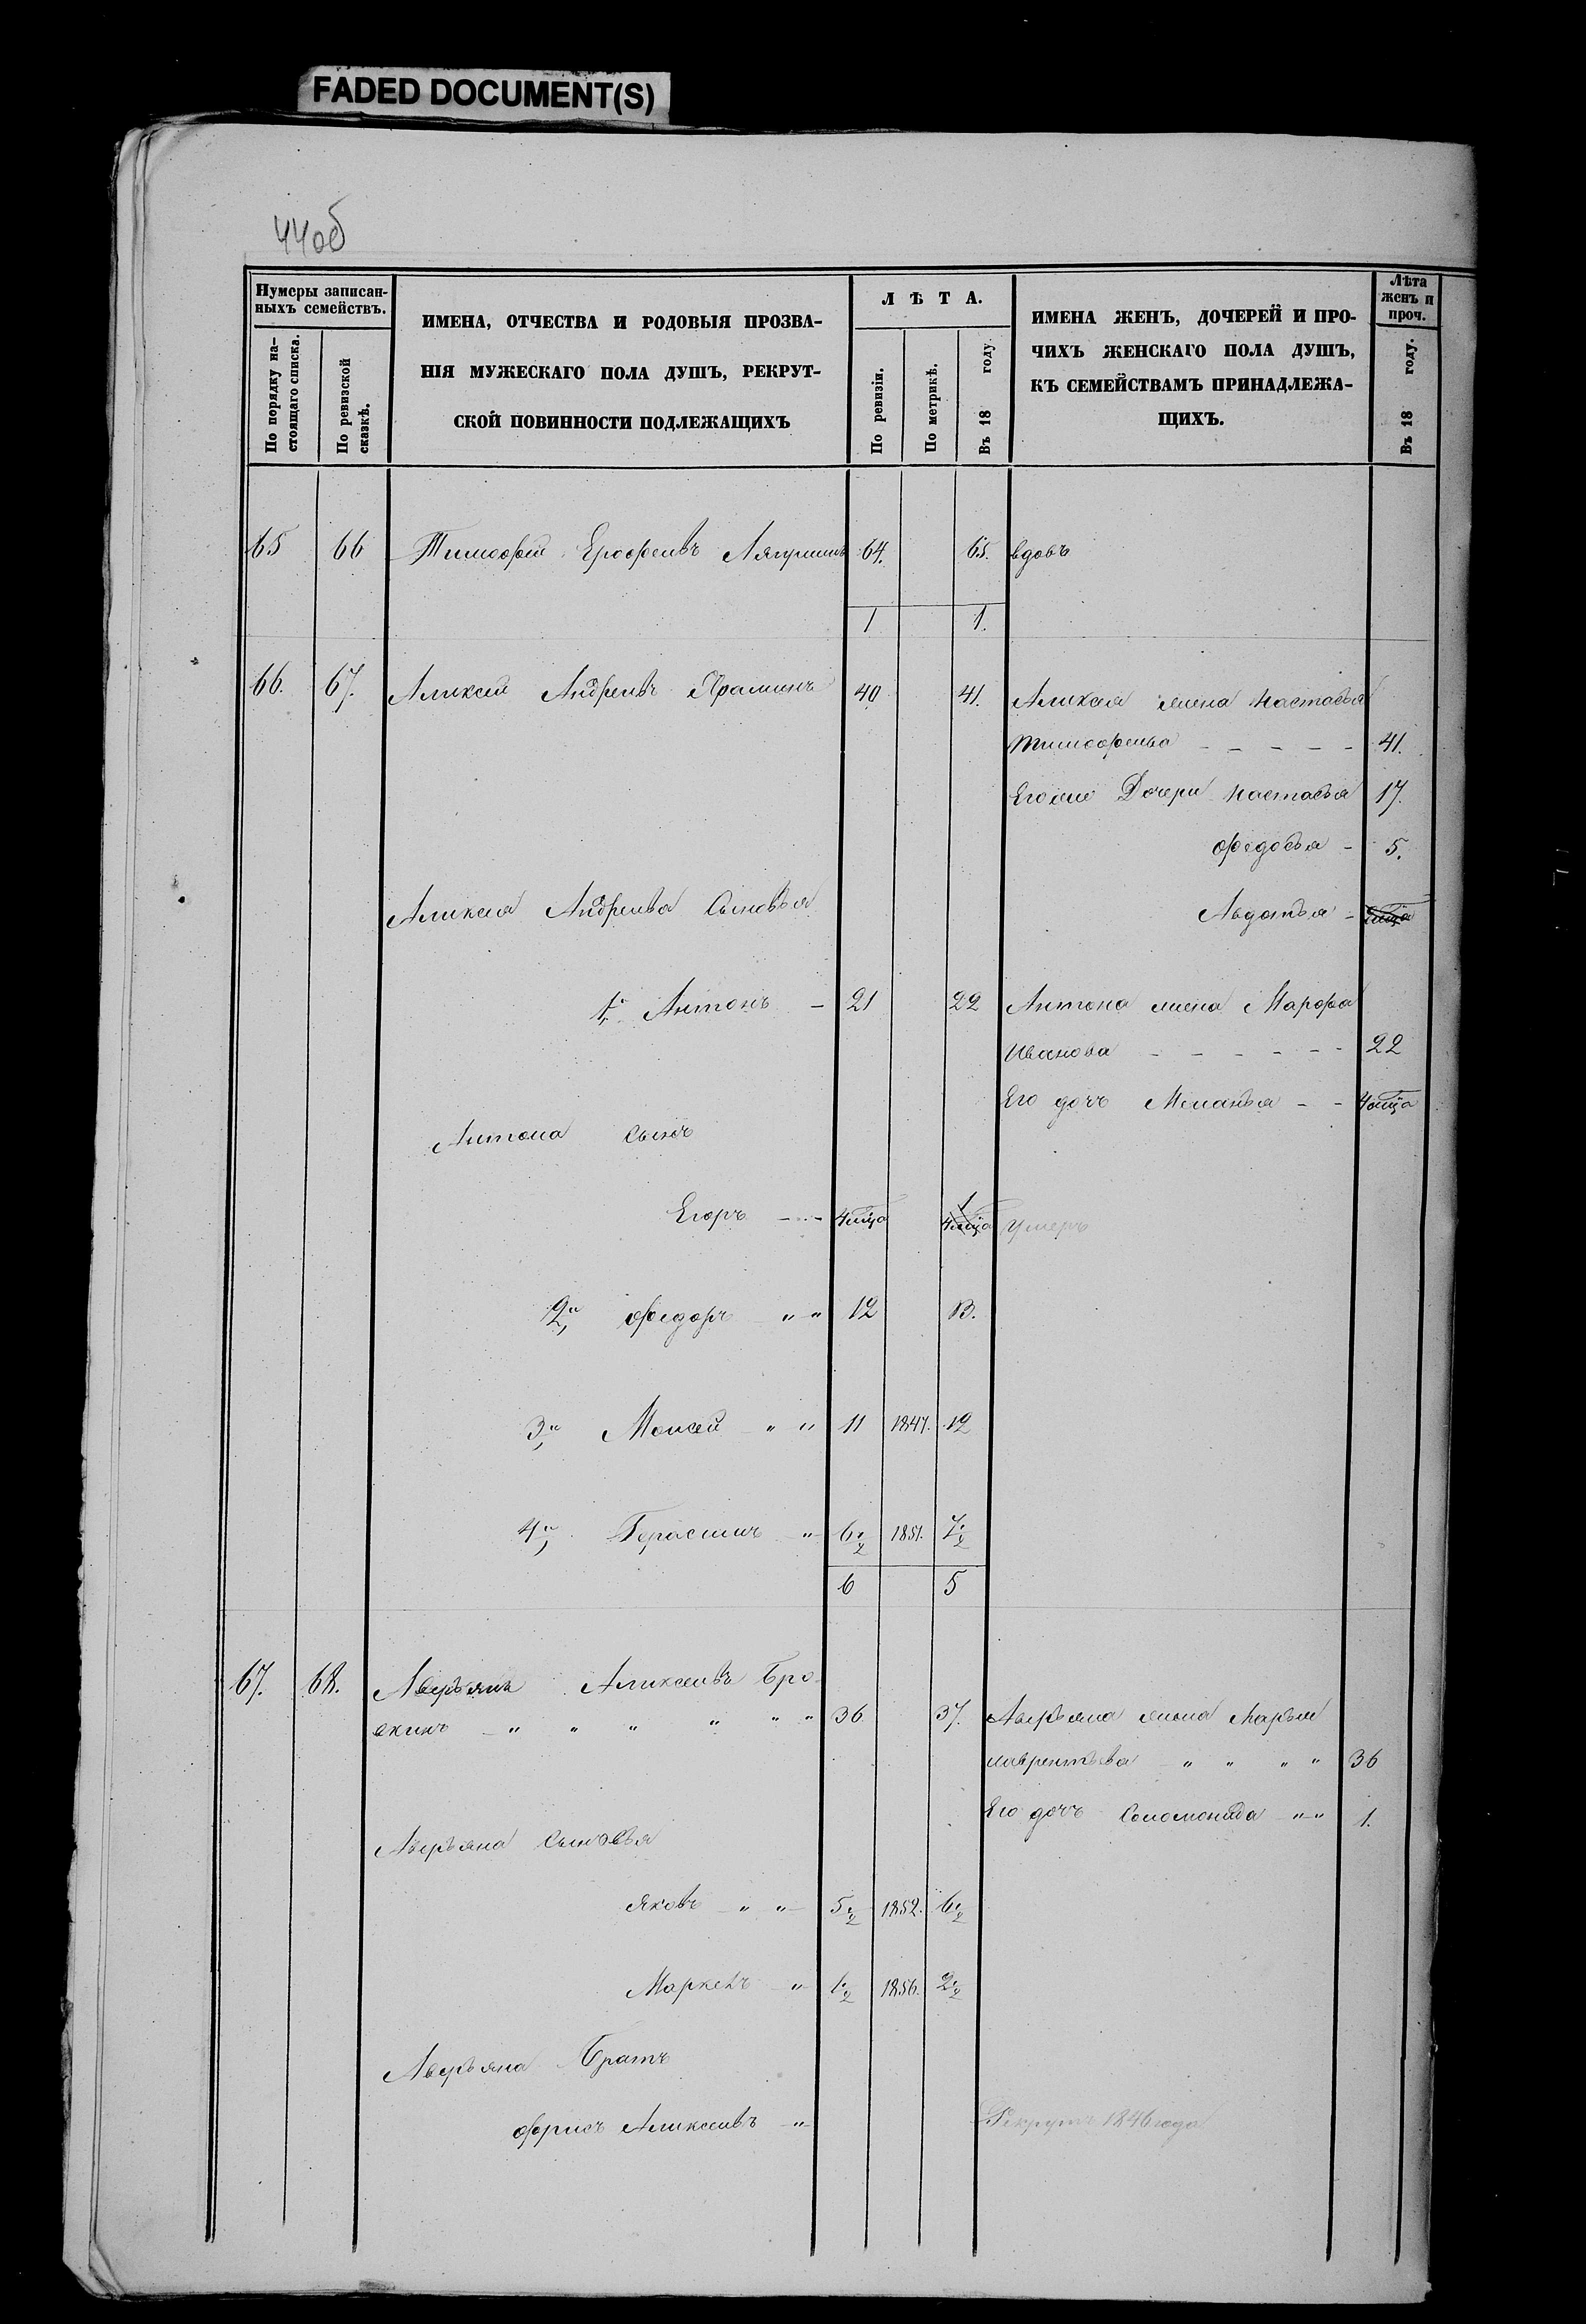 FADED DOCUMENT(S)
44об
Нумеры записан-
ныхъ семействъ.
По порядку на-
стоящаго списка.
По ревизской
сказкѣ.
ИМЕНА, ОТЧЕСТВА И РОДОВЫЯ ПРОЗВА-
НІЯ МУЖЕСКАГО ПОЛА ДУШЪ, РЕКРУТ-
СКОЙ ПОВИННОСТИ ПОДЛЕЖАЩИХЪ
ЛѢТА.
По ревизіи.
По метрикѣ.
Въ 18 году.
ИМЕНА ЖЕНЪ, ДОЧЕРЕЙ И ПРО-
ЧИХЪ ЖЕНСКАГО ПОЛА ДУШЪ,
КЪ СЕМЕЙСТВАМЪ ПРИНАДЛЕЖА-
ЩИХЪ.
Лѣта
женъ и
проч.
Въ 18 году.
65 66 Тимофей Ерофеевъ Лягушинъ 64. 65. вдовъ
1 1.
66. 67. Алексей Андреевъ 40 41. Алексея жена Настасья
Тимофеева - - - - - 41.
Его же Дочери Настасья 17.
Федосья - 5.
Алексея Андреева Сыновья Авдотья -
1й Антонъ - 21 22 Антона жена Марфа
Иванова - - - - - - 22
Его дочь Меланья - - 4 мца
Антона сынъ
Егоръ - - - 4 мца 1 4 мца умеръ
2й Федоръ " " 12 13.
3й Моисей - " " 11 1847. 12
4й Герасимъ " 6½ 1851. 7½
6 5
67. 68. Аверьянъ Алексеевъ Бро-
вкинъ - " " " " " " 36 37. Аверьяна жена Марья
Лаврентьева " " " " 36
Его дочь Соломонида " " 1.
Аверьяна Сыновья
Яковъ - " " - 5½ 1852. 6½
Маркелъ " 1½ 1856. 2½
Аверьяна Братъ
Алексеевъ " Рекрутъ 1846 года